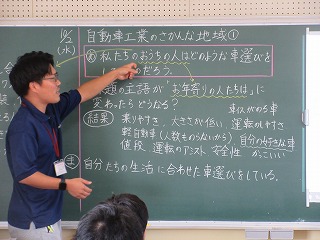 10/2
(水)
自動車工業のさかんな地域①
め 私たちのおうちの人はどのような車選びを
のだろう。
題の主語が「お年寄りの人たちは」に
変わったらどうなる？
結果 乗りやすさ、大きさが低い、運転のしやすさ
軽自動車(人数ものらないから) 自分の好きな車
値段 運転のアシスト 安全性 かっこいい
ま 自分たちの生活に合わせた車選びをしている。